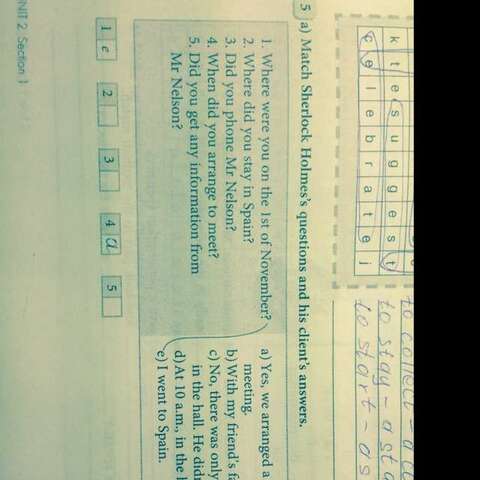 k t e s u g g e s t
c e l e b r a t e j
to collect – a
to stay – a sta
to start – a s
5 a) Match Sherlock Holmes's questions and his client's answers.
1. Where were you on the 1st of November?
2. Where did you stay in Spain?
3. Did you phone Mr Nelson?
4. When did you arrange to meet?
5. Did you get any information from
Mr Nelson?
a) Yes, we arranged a
meeting.
b) With my friend's fa
c) No, there was only
in the hall. He didn
d) At 10 a.m., in the h
e) I went to Spain.
1 e 2 3 4 a 5
UNIT 2. Section 1